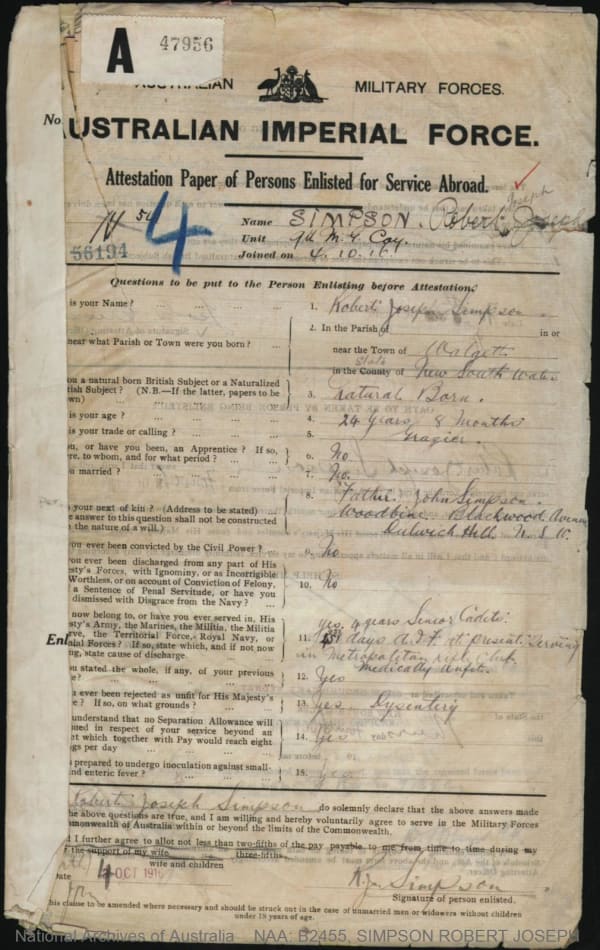 A 47956
AUSTRALIAN MILITARY FORCES.
No.
AUSTRALIAN IMPERIAL FORCE.
Attestation Paper of Persons Enlisted for Service Abroad.
Joseph
4
56194
Name SIMPSON. Robert Joseph
Unit M. G. Coy.
Joined on 4. 10. 16
Questions to be put to the Person Enlisting before Attestation.
is your Name? 1. Robert Joseph Simpson
2. In the Parish of in or
near what Parish or Town were you born? near the Town of Walgett
State
in the County of New South Wales
ou a natural born British Subject or a Naturalized
tish Subject? (N.B.—If the latter, papers to be
wn) 3. Natural Born.
is your age? 4. 24 years 8 Months
is your trade or calling? 5. Grazier.
u, or have you been, an Apprentice? If so,
re, to whom, and for what period? 6. No.
u married? 7. No.
8. Father. John Simpson.
your next of kin? (Address to be stated) Woodbine. Blackwood Avenue
e answer to this question shall not be constructed
the nature of a will.) Dulwich Hill. N.S.W.
ou ever been convicted by the Civil Power? 9. No
ou ever been discharged from any part of His
esty's Forces, with Ignominy, or as Incorrigible
Worthless, or on account of Conviction of Felony,
a Sentence of Penal Servitude, or have you
dismissed with Disgrace from the Navy? 10. No
now belong to, or have you ever served in, His yes. 4 years Senior Cadets.
sty's Army, the Marines, the Militia, the Militia
rve, the Territorial Force, Royal Navy, or 11. days A.I.F. at present serving
Enl nial Forces? If so, state which, and if not now
ng, state cause of discharge in Metropolitan rifle Club.
Medically Unfit.
u stated the whole, if any, of your previous
e? 12. Yes
u ever been rejected as unfit for His Majesty's
e? If so, on what grounds? 13. yes. Dysentery
understand that no Separation Allowance will
ued in respect of your service beyond an
t which together with Pay would reach eight
ngs per day 14. Yes
prepared to undergo inoculation against small-
nd enteric fever? 15. yes
Robert Joseph Simpson do solemnly declare that the above answers made
he above questions are true, and I am willing and hereby voluntarily agree to serve in the Military Forces
mmonwealth of Australia within or beyond the limits of the Commonwealth.
I further agree to allot not less than two-fifths of the pay payable to me from time to time during my
three-fifths
r the support of my wife
wife and children
ate 4 OCT 1916
R. J. Simpson
Signature of person enlisted.
his clause to be amended where necessary and should be struck out in the case of unmarried men or widowers without children
under 18 years of age.
National Archives of Australia NAA: B2455, SIMPSON ROBERT JOSEPH